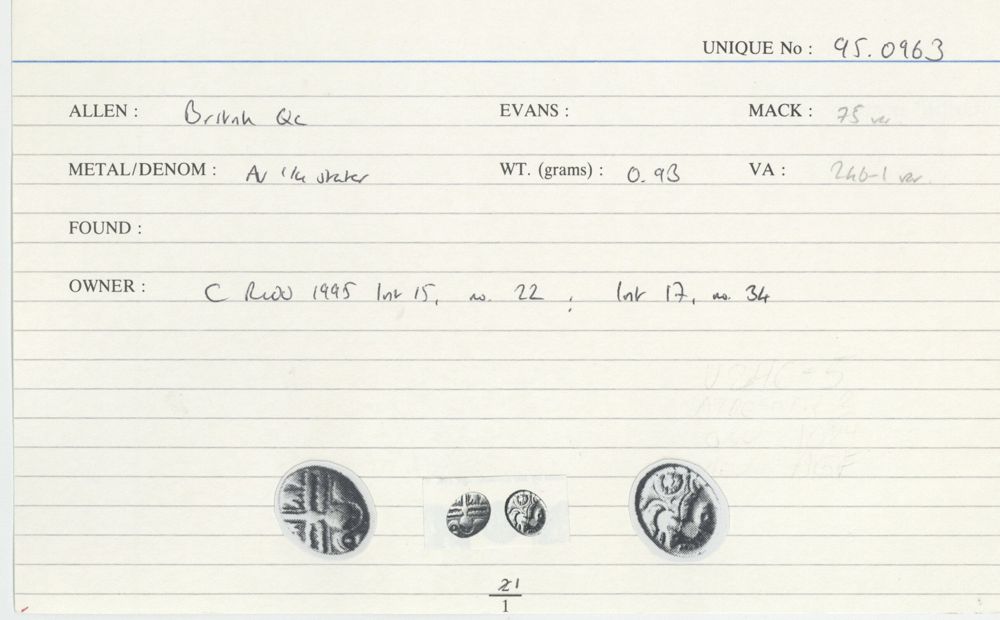 UNIQUE No : 95.0963
ALLEN : British Qc EVANS : MACK : 75 var.
METAL/DENOM : AV 1/4 stater WT. (grams) : 0.93 VA : 246-1 var.
FOUND :
OWNER : C Rudd 1995 list 15, no. 22 ; list 17, no. 34
21
1